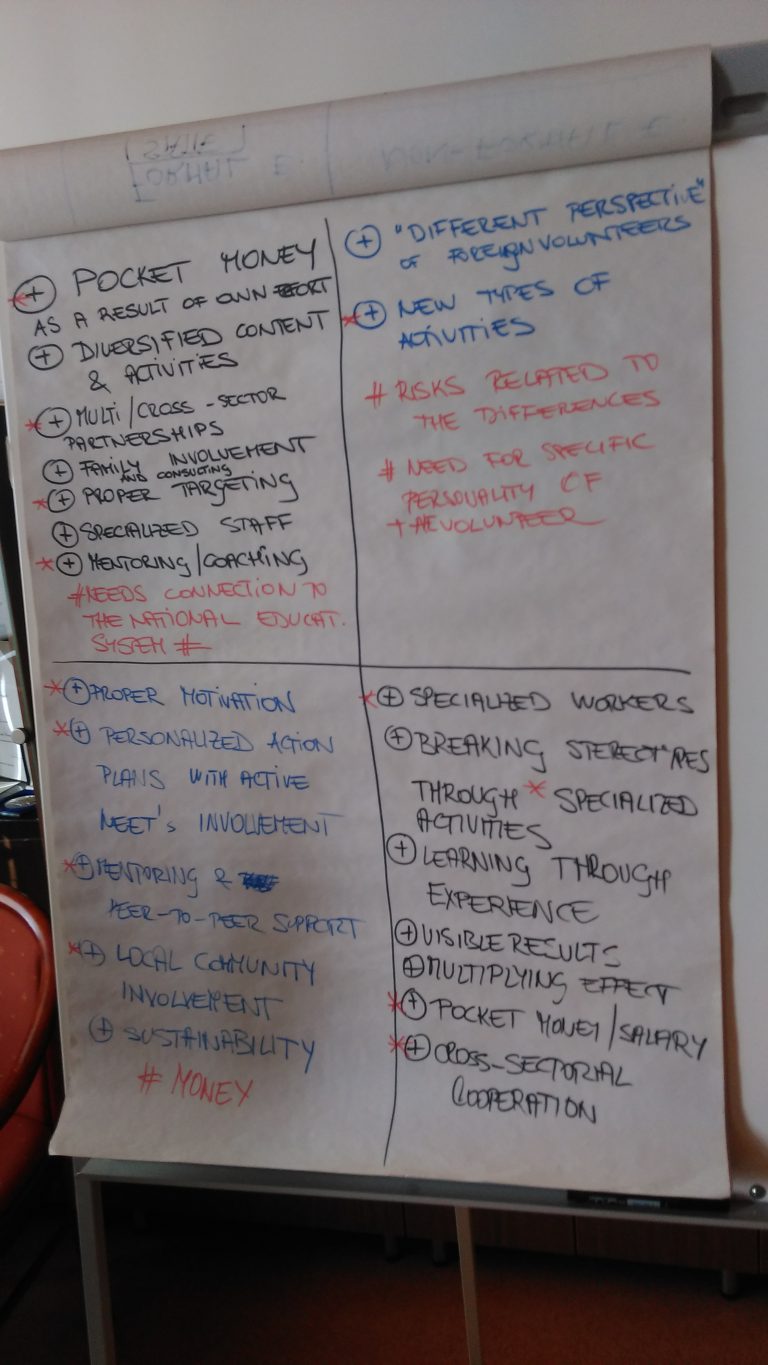 ⊕ POCKET MONEY
AS A RESULT OF OWN EFFORT
⊕ DIVERSIFIED CONTENT
& ACTIVITIES
*⊕ MULTI/CROSS-SECTOR
PARTNERSHIPS
⊕ FAMILY INVOLVEMENT
AND CONSULTING
*⊕ PROPER TARGETING
⊕ SPECIALIZED STAFF
*⊕ MENTORING/COACHING
#NEEDS CONNECTION TO
THE NATIONAL EDUCAT.
SYSTEM #
⊕ "DIFFERENT PERSPECTIVE"
OF FOREIGN VOLUNTEERS
*⊕ NEW TYPES OF
ACTIVITIES
# RISKS RELATED TO
THE DIFFERENCES
# NEED FOR SPECIFIC
PERSONALITY OF
THE VOLUNTEER
*⊕ PROPER MOTIVATION
*⊕ PERSONALIZED ACTION
PLANS WITH ACTIVE
NEET'S INVOLVEMENT
*⊕ MENTORING &
PEER-TO-PEER SUPPORT
*⊕ LOCAL COMMUNITY
INVOLVEMENT
⊕ SUSTAINABILITY
# MONEY
*⊕ SPECIALIZED WORKERS
⊕ BREAKING STEREOTYPES
THROUGH * SPECIALIZED
ACTIVITIES
⊕ LEARNING THROUGH
EXPERIENCE
⊕ VISIBLE RESULTS
⊕ MULTIPLYING EFFECT
*⊕ POCKET MONEY/SALARY
*⊕ CROSS-SECTORIAL
COOPERATION